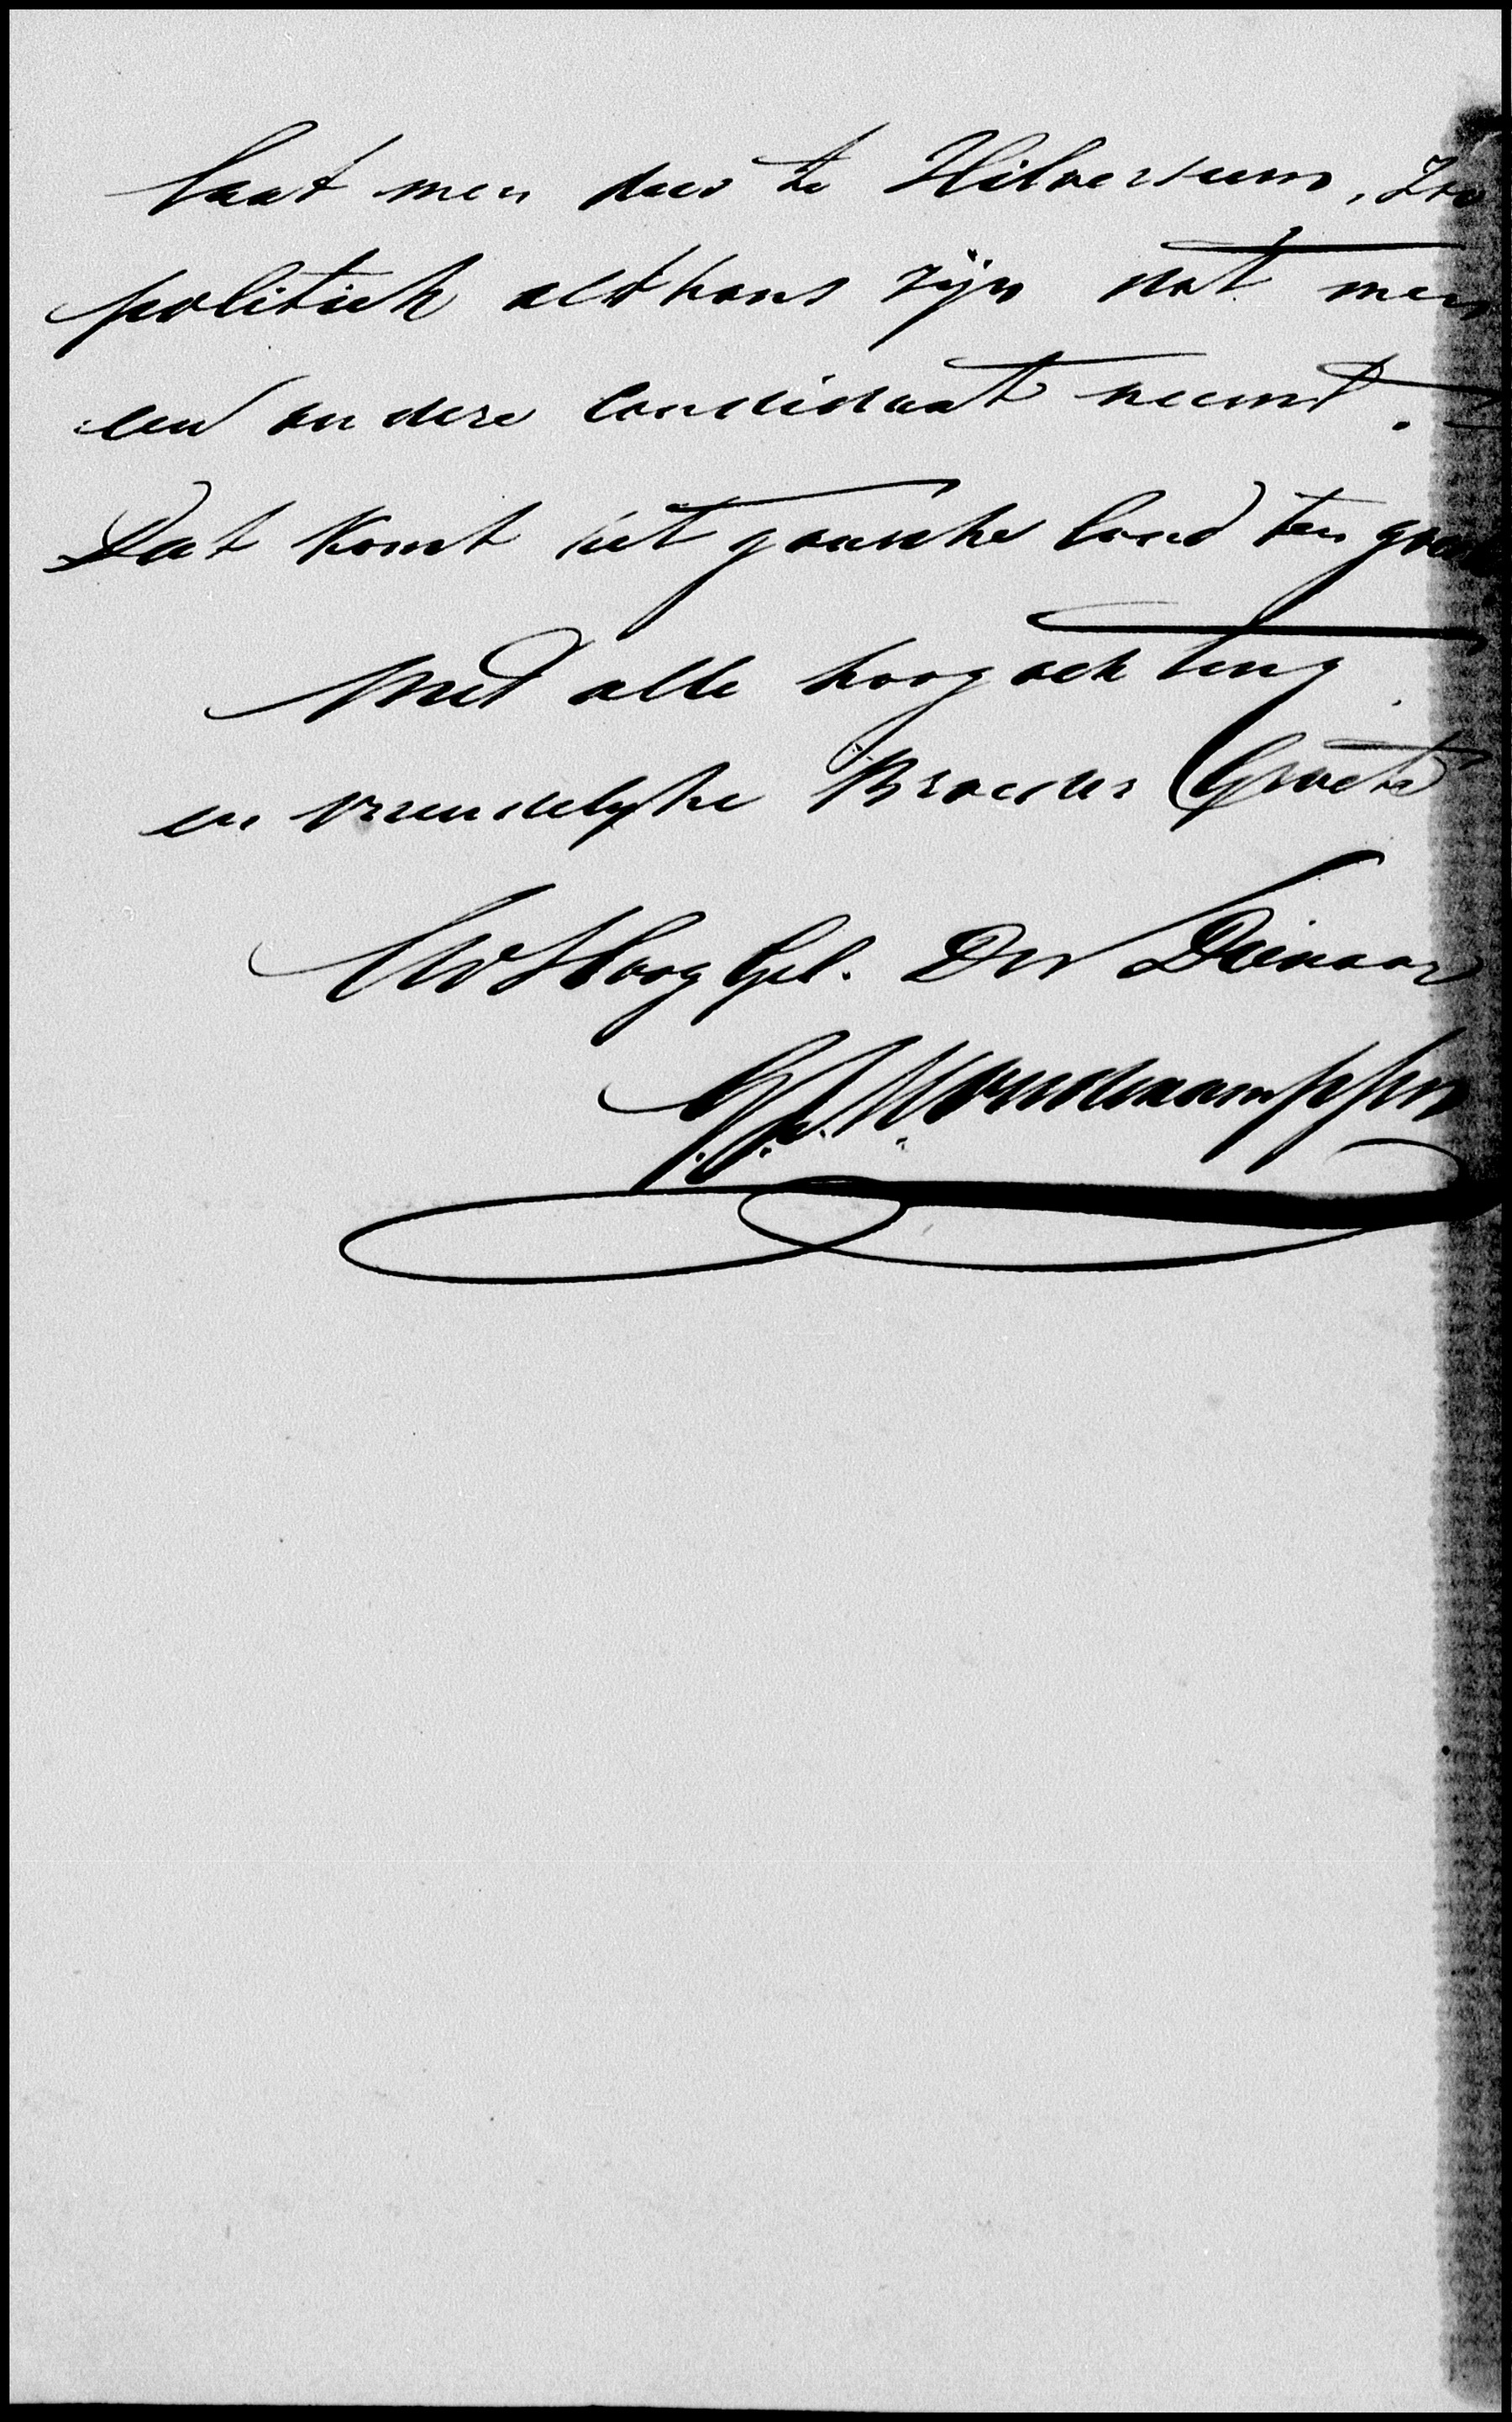 laat men dus te Hilversum, zoo
politiek althans zijn dat men
een andere candidaat neemt.
Dat komt het gansche land ten goede
Met alle hoogachting
en vriendelyke Broeder Groete
UwHoogGel. Dw Dienaar